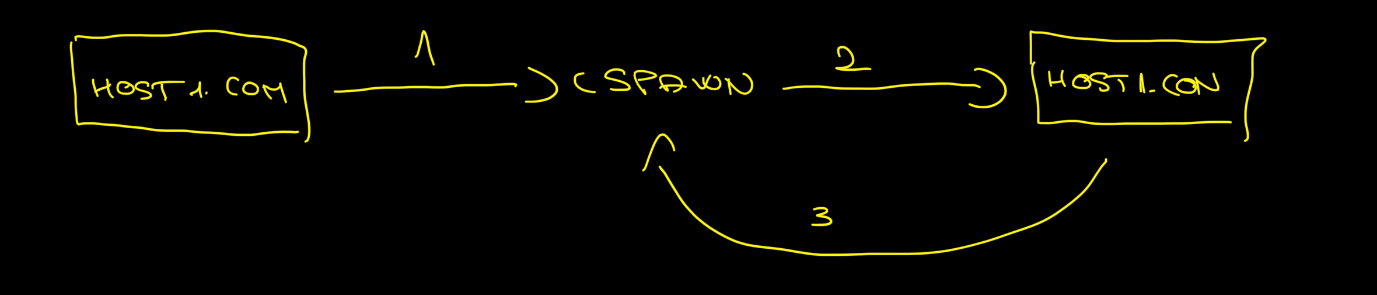 1
2
HOST1.COM
CSPAWN
HOST1.CON
3